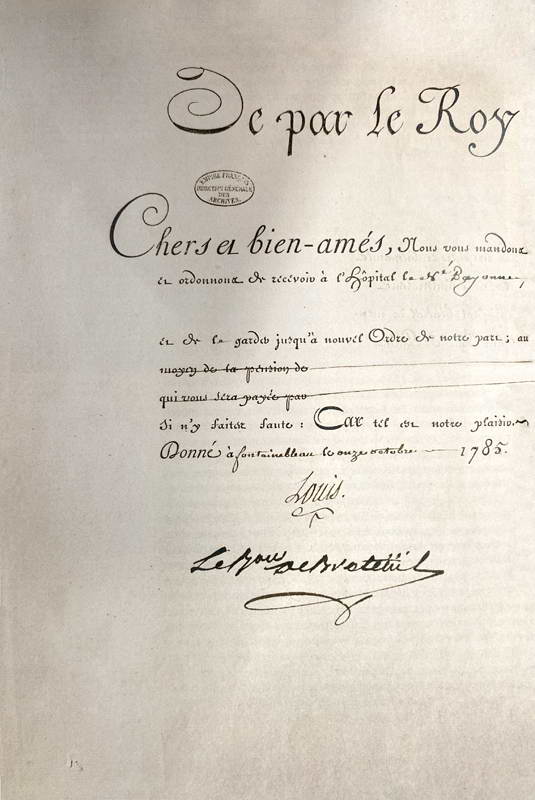 De par le Roy
EMPIRE FRANÇAIS
DIRECTION GÉNÉRALE
DES
ARCHIVES.
Chers et bien-amés, Nous vous mandons
et ordonnons de recevoir à l'hôpital le Né Bayonne,
et de le garder jusqu'à nouvel Ordre de notre part; au
moyen de la pension de
qui vous sera payée par
Si n'y faites faute: Car tel est notre plaisir.
Donné à fontainebleau le onze octobre 1785.
Louis.
Le Bon de Breteüil